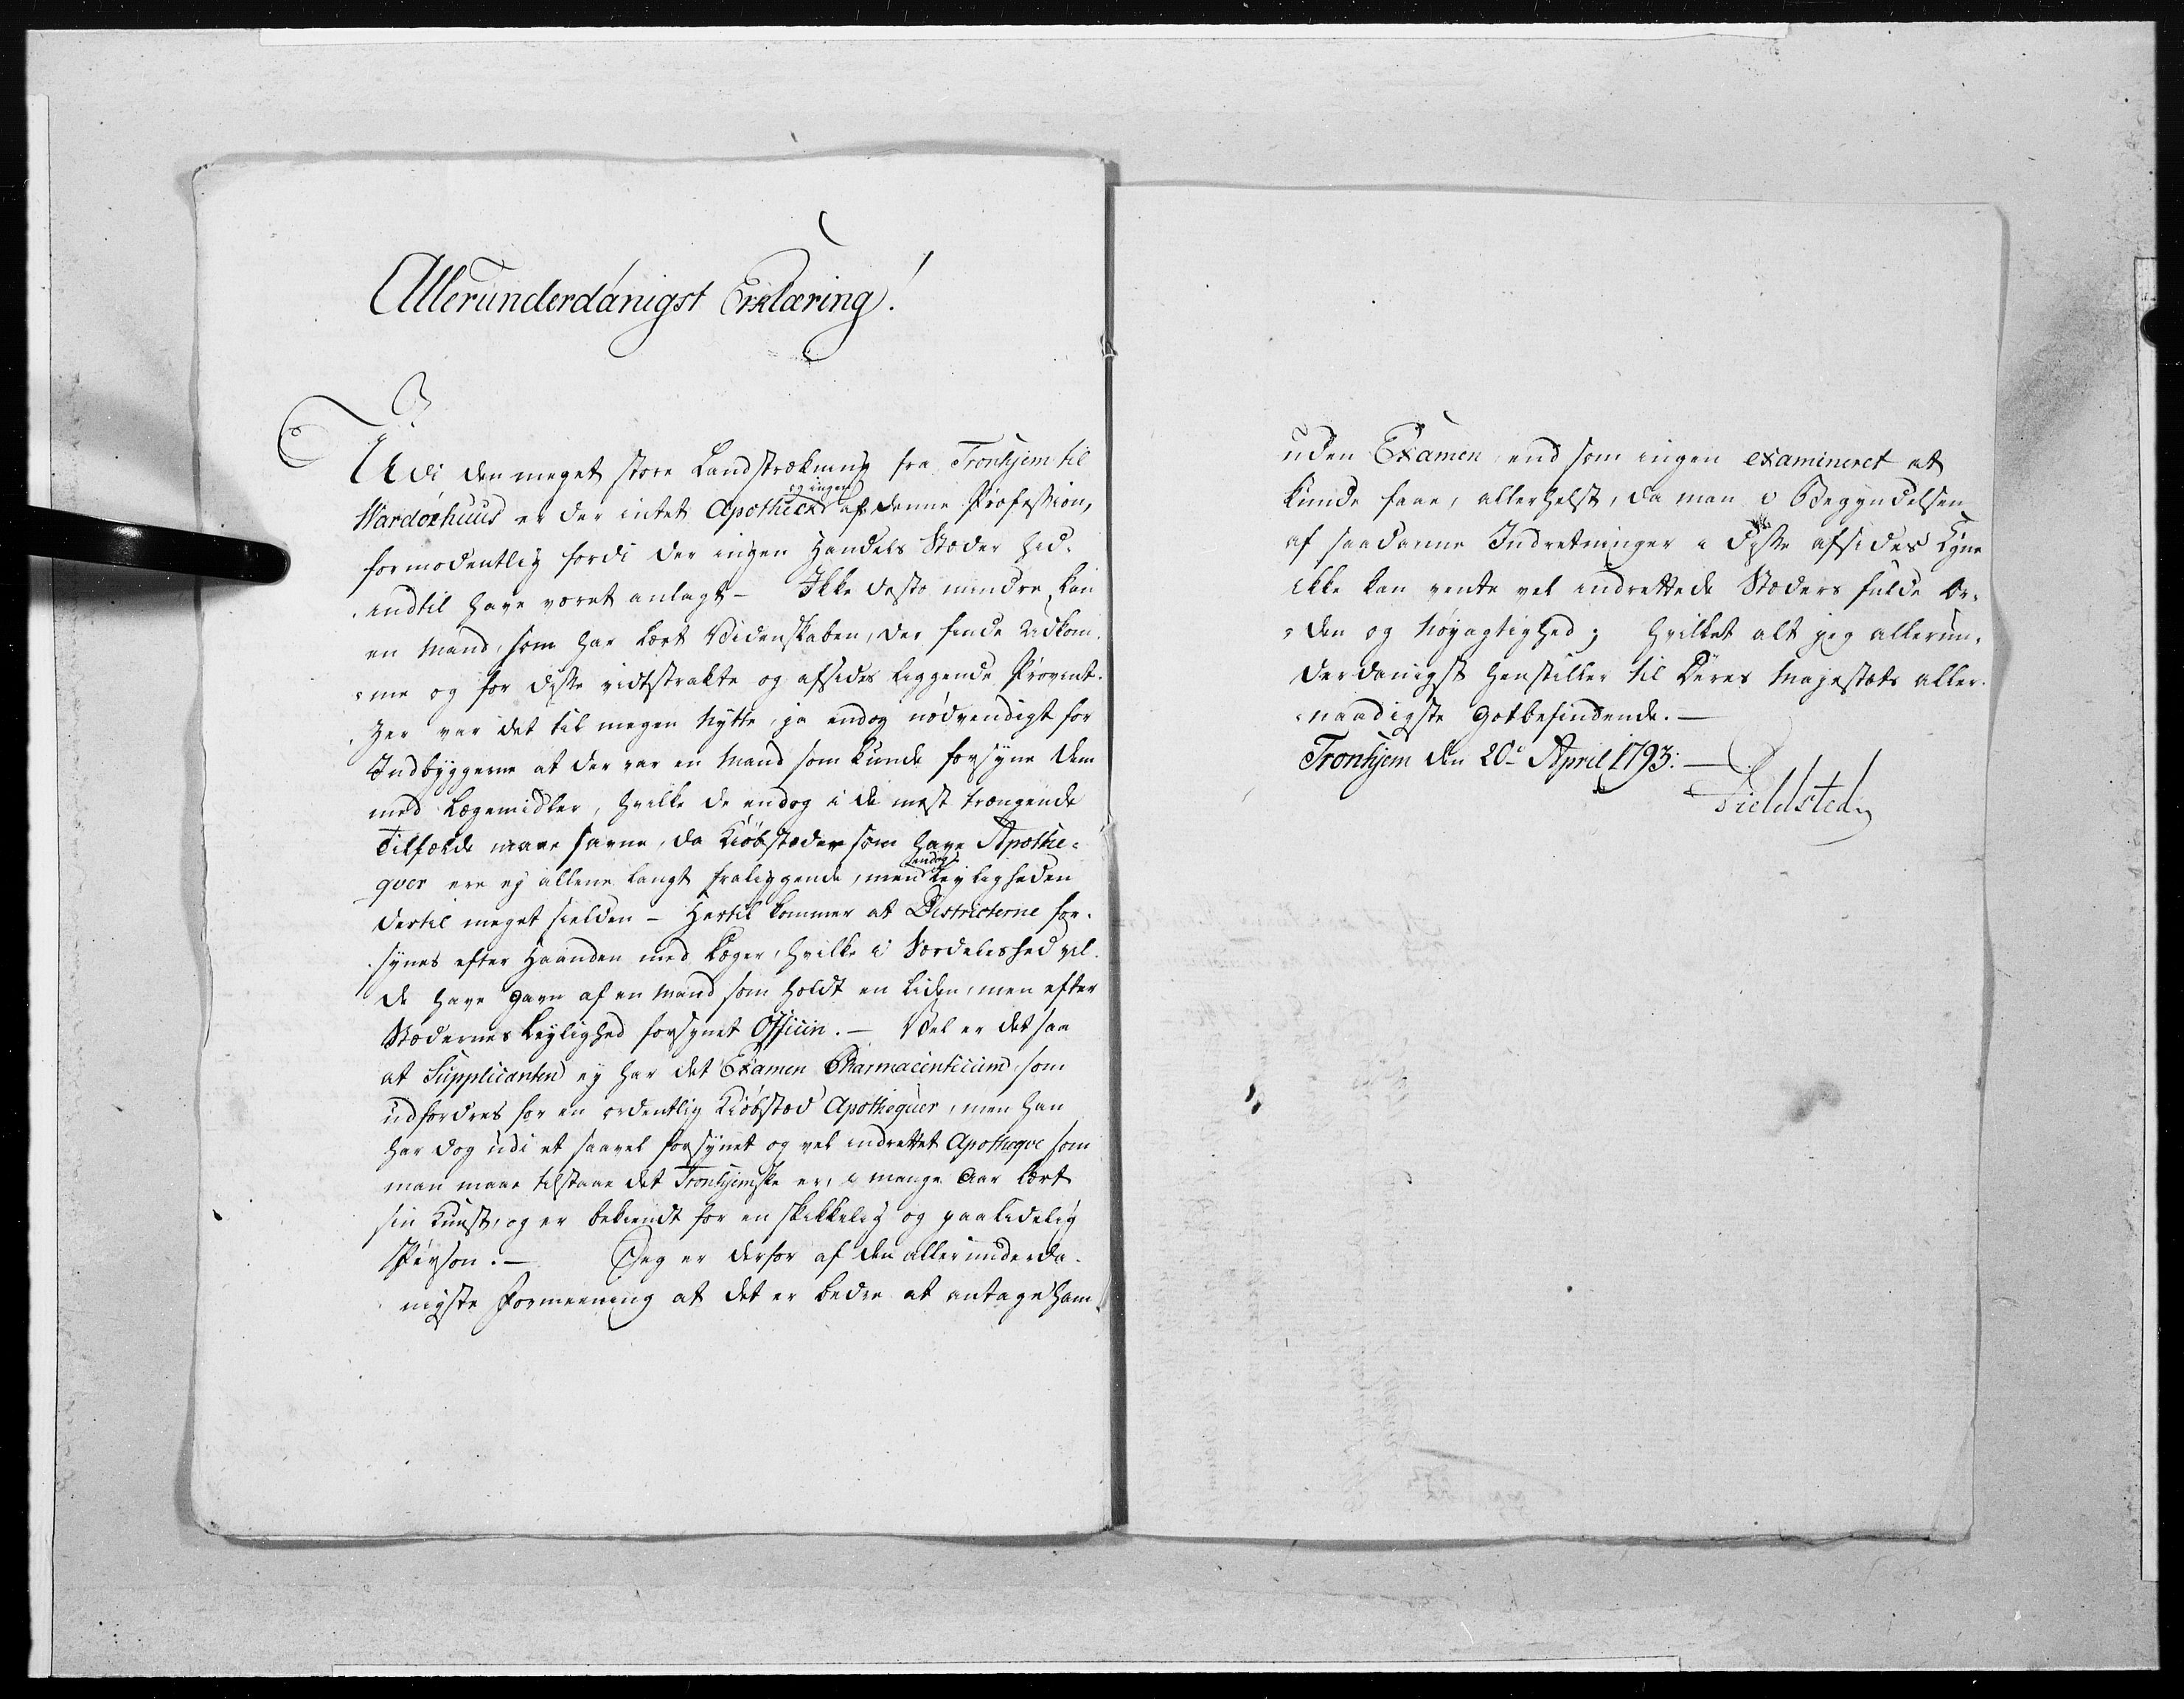 Allerunderdánigst Erklæring!
Udi den meget store Landstrækning fra Tronhjem til
og ingen
Wardøehuus er der intet Apothick af denne Profession,
formodentlig fordi der ingen Handels Stæder hid-
indtil have været anlagt – Ikke desto mindre kan
en Mand, som har lært Videnskaben, der finde Udkom-
me og for disse vidtstrakte og afsides liggende Provint-
zer var det til megen Nytte, ja endog nødvendigt for
Indbyggerne at der var en Mand som kunde forsyne dem
med Lægemidler, hvilke de endog i de mest trængende
Tilfælde maae savne, da Kiöbstæder som have Apothe-
endog
qver ere ej allene langt fraliggende, men Leyligheden
dertil meget sielden – Hertil kommer at Districterne for-
synes efter Haanden med Læger, hvilke i Særdeleshed vil-
de have Gavn af en Mand som holdt en liden, men efter
Stædernes Leylighed forsynet Officin. – Vel er det saa
at Supplicanten ey har det Examen Pharmacevticum, som
udfordres for en ordentlig Kiöbstæd Apothequer, men han
har dog udi et saavel forsynet og vel indrettet Apotheqve som
man maae tilstaae det Tronhjemske er, i mange Aar lært
sin Kunst, og er bekiendt for en skikkelig og paalidelig
Person. – Jeg er derfor af den allerunderda-
nigste Formeening at det er bedre at antage ham
uden Examen end som ingen examineret at
kunde faae, allerhelst, da man i Begyndelsen
af saadanne Indretninger i disse afsides Egne
ikke kan vente vel indrettede Stæders fulde Or-
den og Nöyagtighed; hvilket alt jeg allerun-
derdanigst henstiller til Deres Majestæts aller-
naadigste Gotbefindende. –
Tronhjem den 20de April 1793. –
Fieldsted